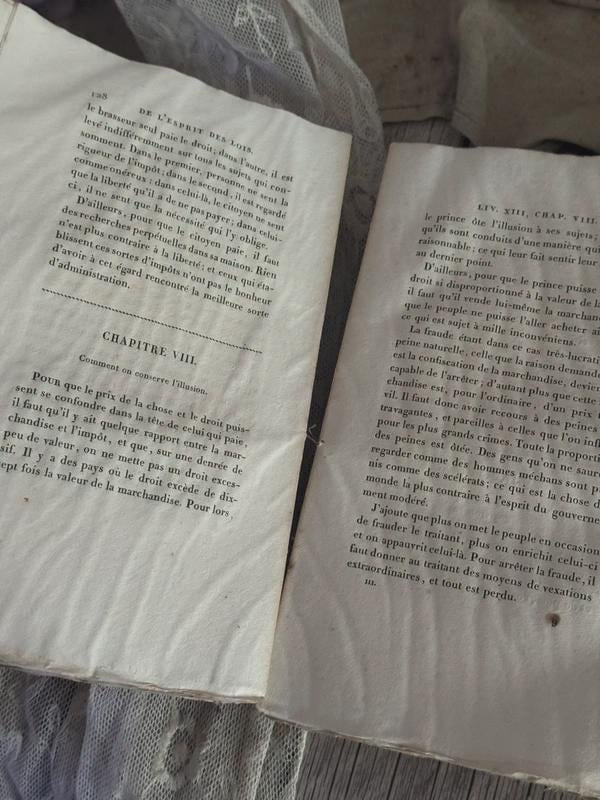 128
DE L'ESPRIT DES LOIS.
le brasseur seul paie le droit; dans l'autre, il est
levé indifféremment sur tous les sujets qui con-
somment. Dans le premier, personne ne sent la
rigueur de l'impôt; dans le second, il est regardé
comme onéreux: dans celui-là, le citoyen ne sent
que la liberté qu'il a de ne pas payer; dans celui-
ci, il ne sent que la nécessité qui l'y oblige.
D'ailleurs, pour que le citoyen paie, il faut
des recherches perpétuelles dans sa maison. Rien
n'est plus contraire à la liberté; et ceux qui éta-
blissent ces sortes d'impôts n'ont pas le bonheur
d'avoir à cet égard rencontré la meilleure sorte
d'administration.
CHAPITRE VIII.
Comment on conserve l'illusion.
Pour que le prix de la chose et le droit puis-
sent se confondre dans la tête de celui qui paie,
il faut qu'il y ait quelque rapport entre la mar-
chandise et l'impôt, et que, sur une denrée de
peu de valeur, on ne mette pas un droit exces-
sif. Il y a des pays où le droit excède de dix-
sept fois la valeur de la marchandise. Pour lors,
LIV. XIII, CHAP. VIII.
le prince ôte l'illusion à ses sujets;
qu'ils sont conduits d'une manière qui
raisonnable; ce qui leur fait sentir leur
au dernier point.
D'ailleurs, pour que le prince puisse
droit si disproportionné à la valeur de la
il faut qu'il vende lui-même la marchan
que le peuple ne puisse l'aller acheter ai
ce qui est sujet à mille inconvéniens.
La fraude étant dans ce cas très-lucrati
peine naturelle, celle que la raison demande
est la confiscation de la marchandise, devien
capable de l'arrêter; d'autant plus que cette
chandise est, pour l'ordinaire, d'un prix t
vil. Il faut donc avoir recours à des peines
travagantes, et pareilles à celles que l'on infl
pour les plus grands crimes. Toute la proporti
des peines est ôtée. Des gens qu'on ne saur
regarder comme des hommes méchans sont p
nis comme des scélérats; ce qui est la chose d
monde la plus contraire à l'esprit du gouverne
ment modéré.
J'ajoute que plus on met le peuple en occasion
de frauder le traitant, plus on enrichit celui-ci
et on appauvrit celui-là. Pour arrêter la fraude, il
faut donner au traitant des moyens de vexations
extraordinaires, et tout est perdu.
III.
9